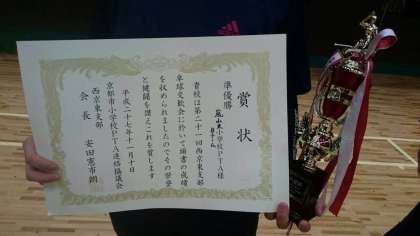 賞状
準優勝
嵐山東小学校PTA様
貴校は第二十一回西京東支部
卓球交歓会に於いて頭書の成績
を収められましたのでその栄誉
と健闘を讃えこれを賞します
平成二十七年十一月十日
京都市小学校PTA連絡協議会
西京東支部
会長 安田憲市朗